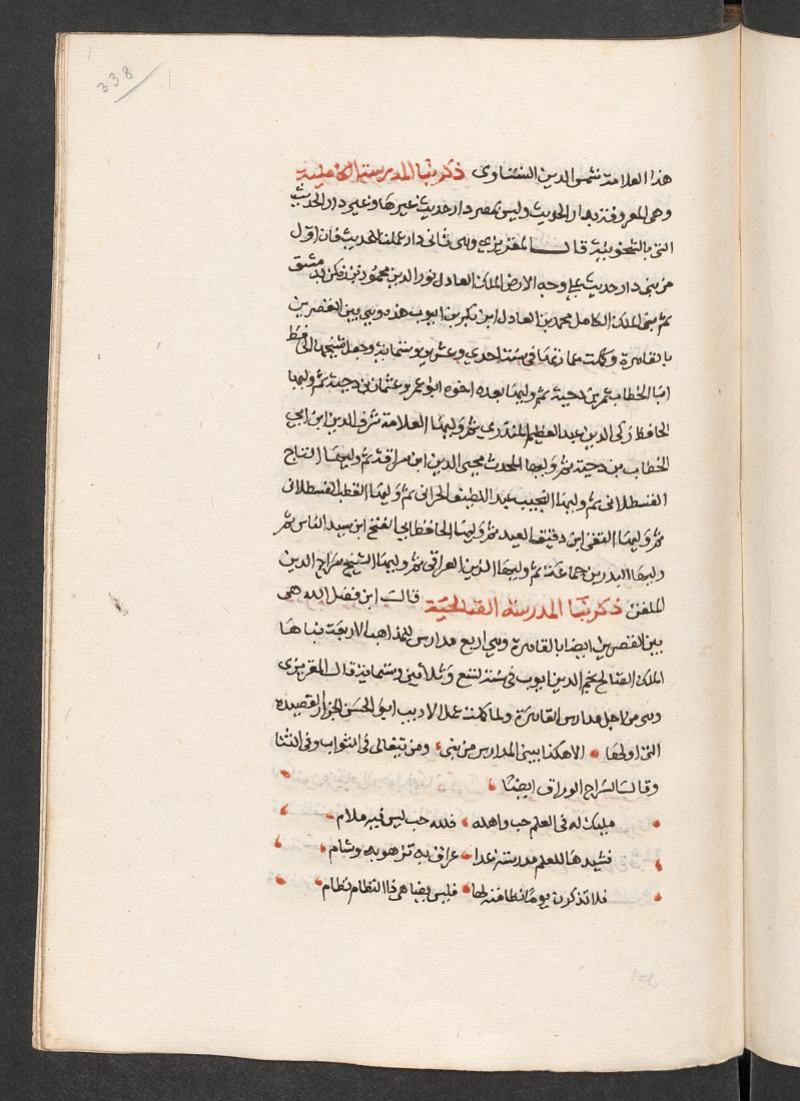 338
هذا العلامة شمس الدين السناوى ذكر بنا المدرسة الكاملية
وهى المعروفة بدار الحديث وليس بمصر دار حديث غيرها وغير دار الحديث
التى بالشيخونية قال المقريزى وهى ثانى دار عملت للحديث فان اول
من بنى دار حديث على وجه الارض الملك العادل نور الدين محمود بن زنكى بدمشق
ثم بنى الملك الكامل محمد بن العادل ابن بكر بن ايوب هذه وهى بين القصرين
بالقاهرة وكملت عمارتها فى سنة احدى وعشرين وستماية وجعل شيخها الحافظ
ابا الخطاب عمر بن دحية ثم وليها بعده اخوه ابو عمرو عثمان بن دحية ثم وليها
الحافظ زكى الدين عبد العظيم المنذرى ثم وليها العلامة شرف الدين ابن ابى
الخطاب بن دحية ثم وليها المحدث محيى الدين ابن سراقة ثم وليها التاج
القسطلانى ثم وليها النجيب عبد اللطيف الحرانى ثم وليها القطب القسطلانى
ثم وليها التقى ابن دقيق العيد ثم وليها الحافظ ابى الفتح ابن سيد الناس ثم
وليها البدر بن جماعة ثم وليها الزين العراقى ثم وليها الشيخ سراج الدين
الملقن ذكر بنا المدرسة الصالحية قال ابن فضل الله هى
بين القصرين ايضا بالقاهرة وهى اربع مدارس للمذاهب الاربعة بناها
الملك الصالح نجم الدين ايوب فى سنة تسع وثلاثين وستماية قال المقريزى
وهى من اجل مدارس القاهرة ولما كملت عمل الاديب ابى الحسن الجزار القصيده
التى اولها الاهكذا يبنى المدارس من بنى ومن يتغالى فى الثواب وفى الثنا
وقال السراج الوراق ايضا
مليك له فى العلم حب واهله فلله حب ليس فيه ملام
فشيدها للعلم مدرسة غدا عراق به تزهو به وشام
فلا تذكرن يوما نظامنة لها فليس يضاهى ذا النظام نظام